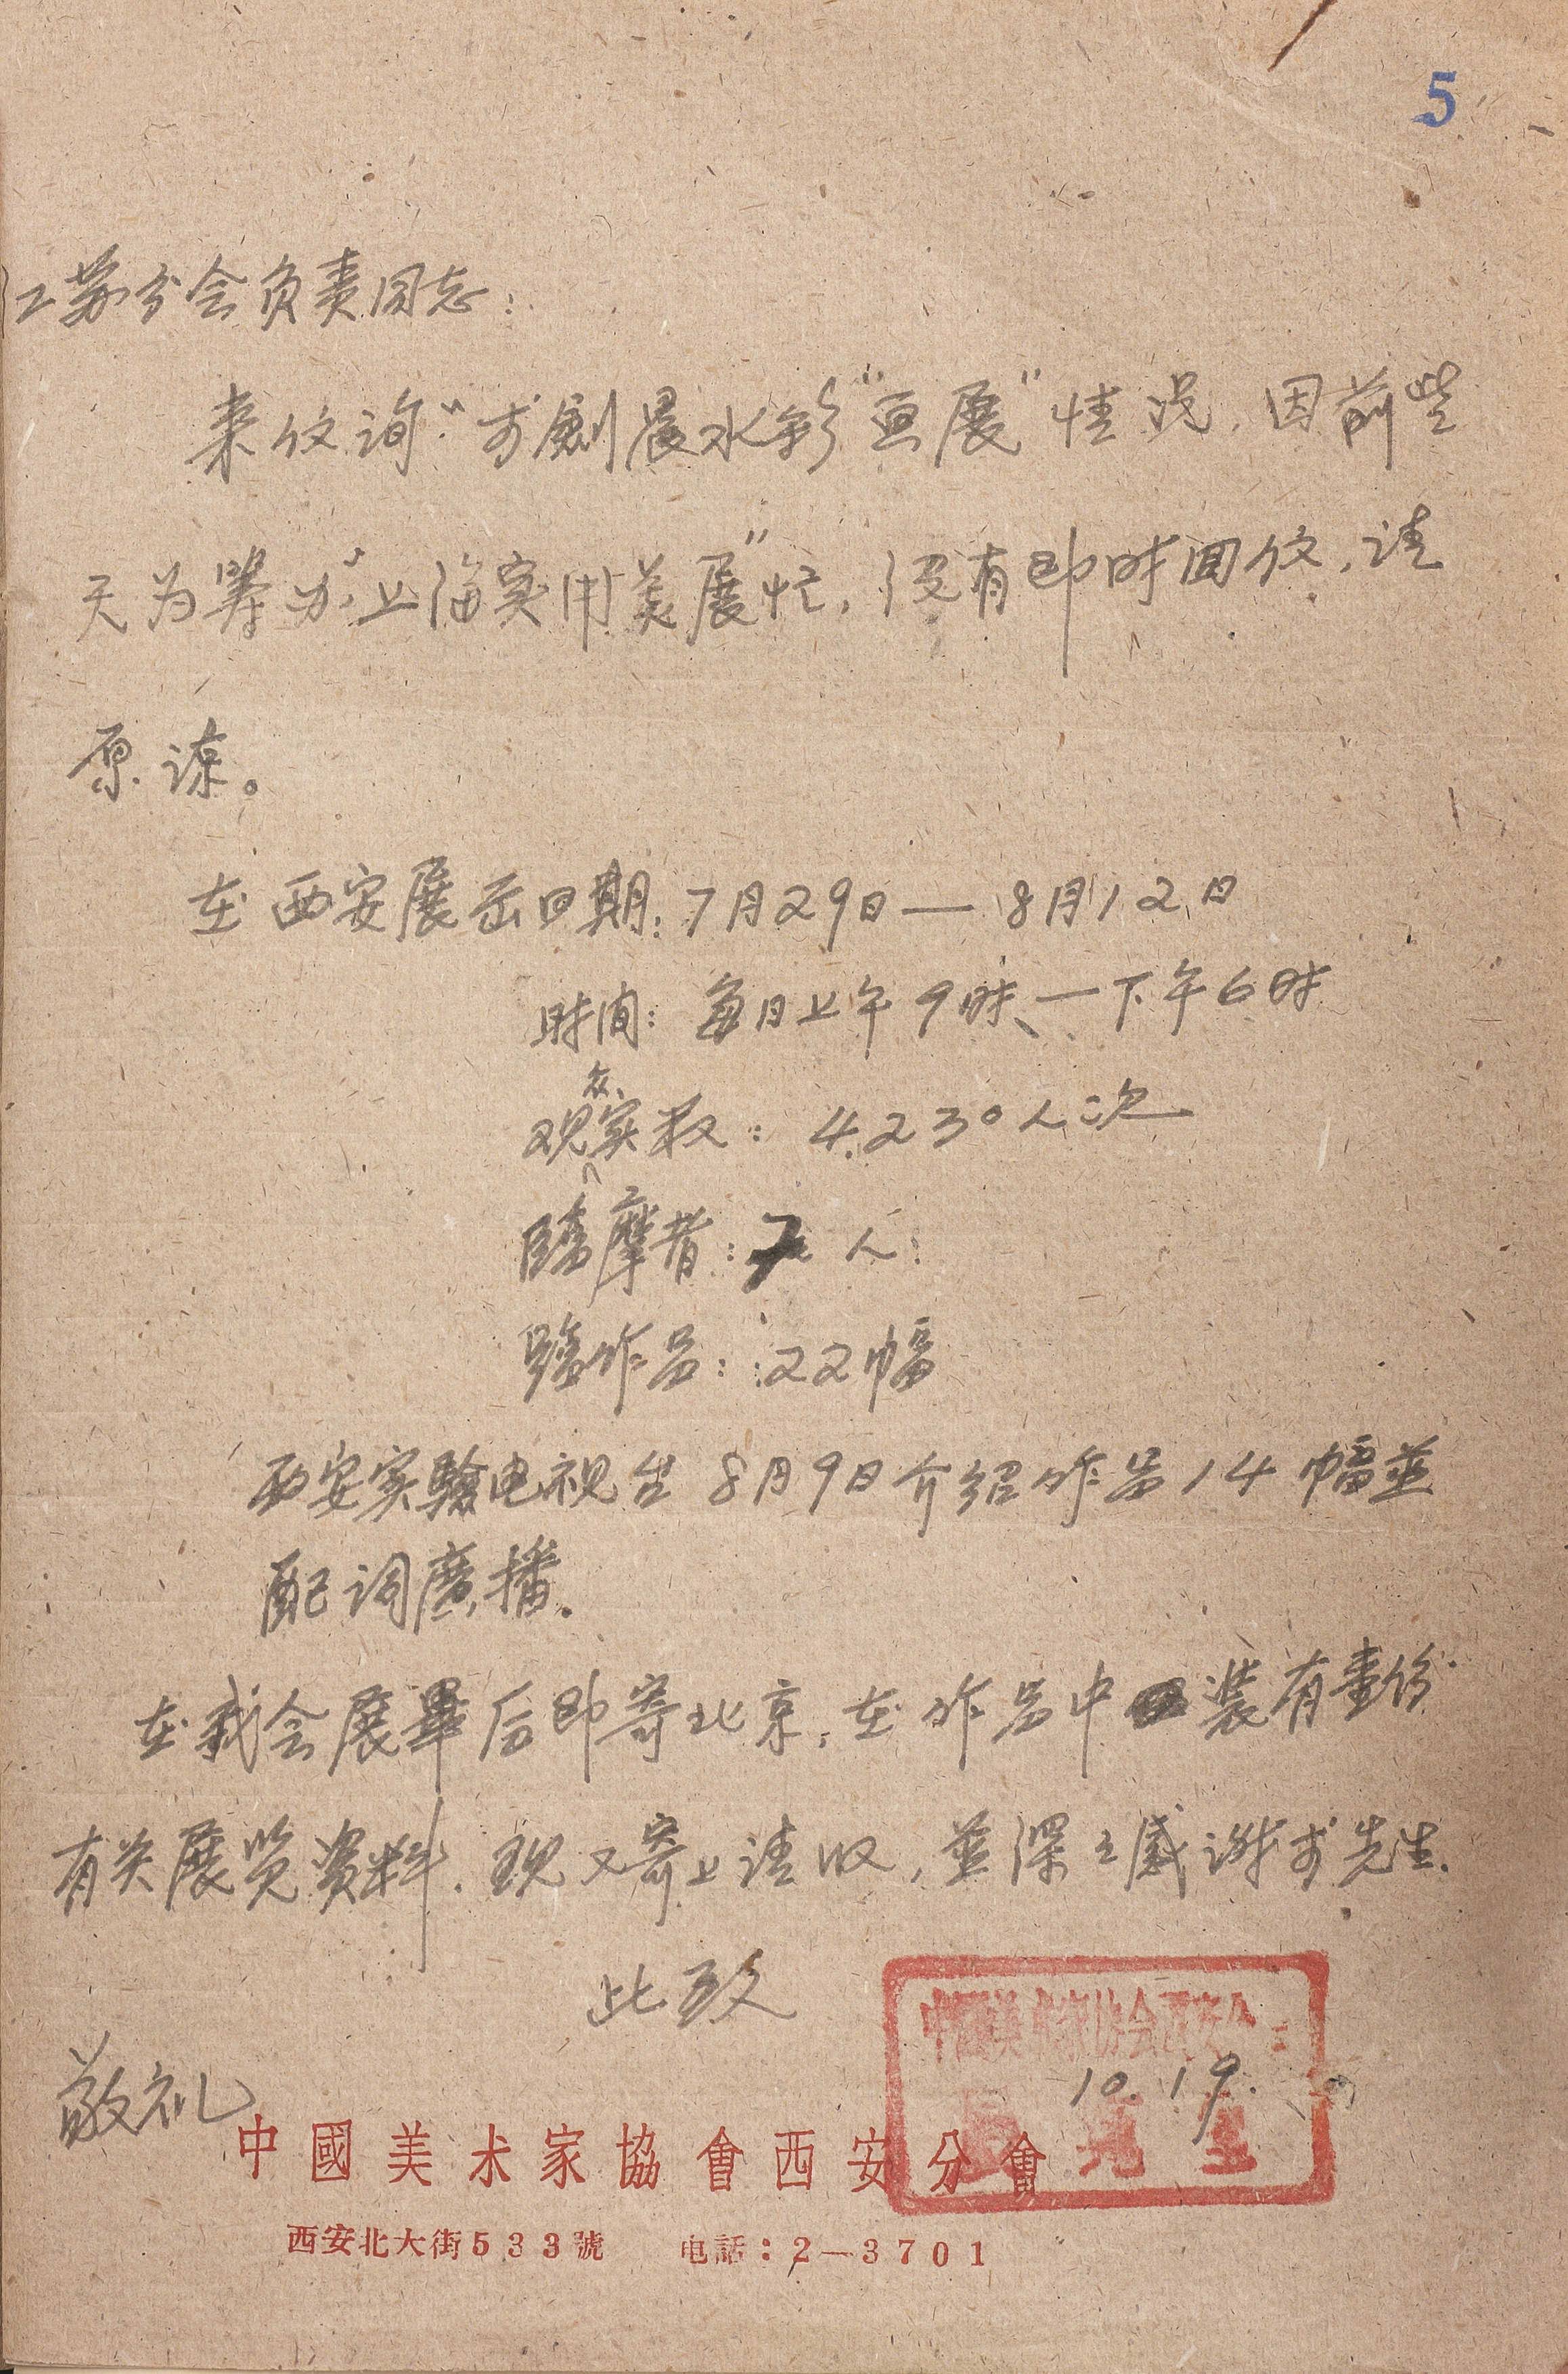 5
江苏分会负责同志：
来攵询“李劍晨水彩“画展”情况，因前些
天为筹办“上海实用美展”忙，没有即时回攵，请
原谅。
在西安展出日期：7月29日—8月12日
时间：每日上午9时—下午6时
观众实数：4230人次
臨摩者：7人
臨作品：22幅
西安实驗电视台8月9日介绍作品14幅並
配词廣播。
在我会展畢后即寄北京，在作品中装有壹份
有关展览資料．现又寄上请收，並深之感谢李先生．
此致
敬礼
中国美术家协会西安分会
展览
10.19.
中國美术家協會西安分會
西安北大街533號 电話：2—3701